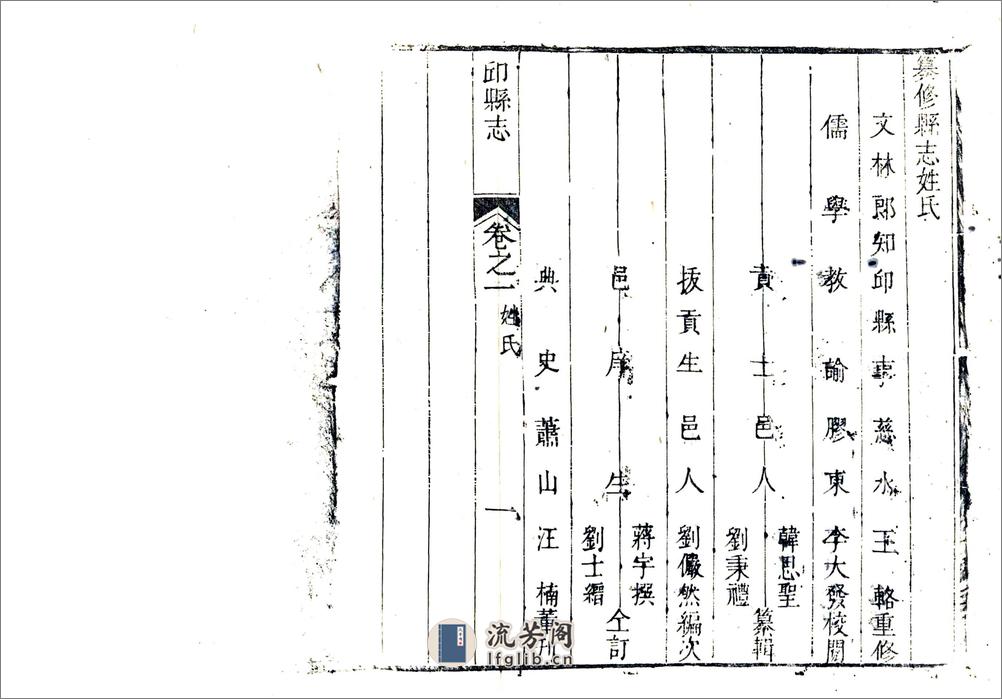 纂修縣志姓氏
文林郎知卭縣事慈水王輅重修
儒學教諭膠東李大發校閱
貢士邑人韓思聖 劉秉禮 纂輯
拔貢生邑人劉儼然編次
邑庠生蔣宇撰 劉士縉 仝訂
典史蕭山汪楠董刊
卭縣志
卷之一
姓氏
一
流芳阁
lfglib.cn